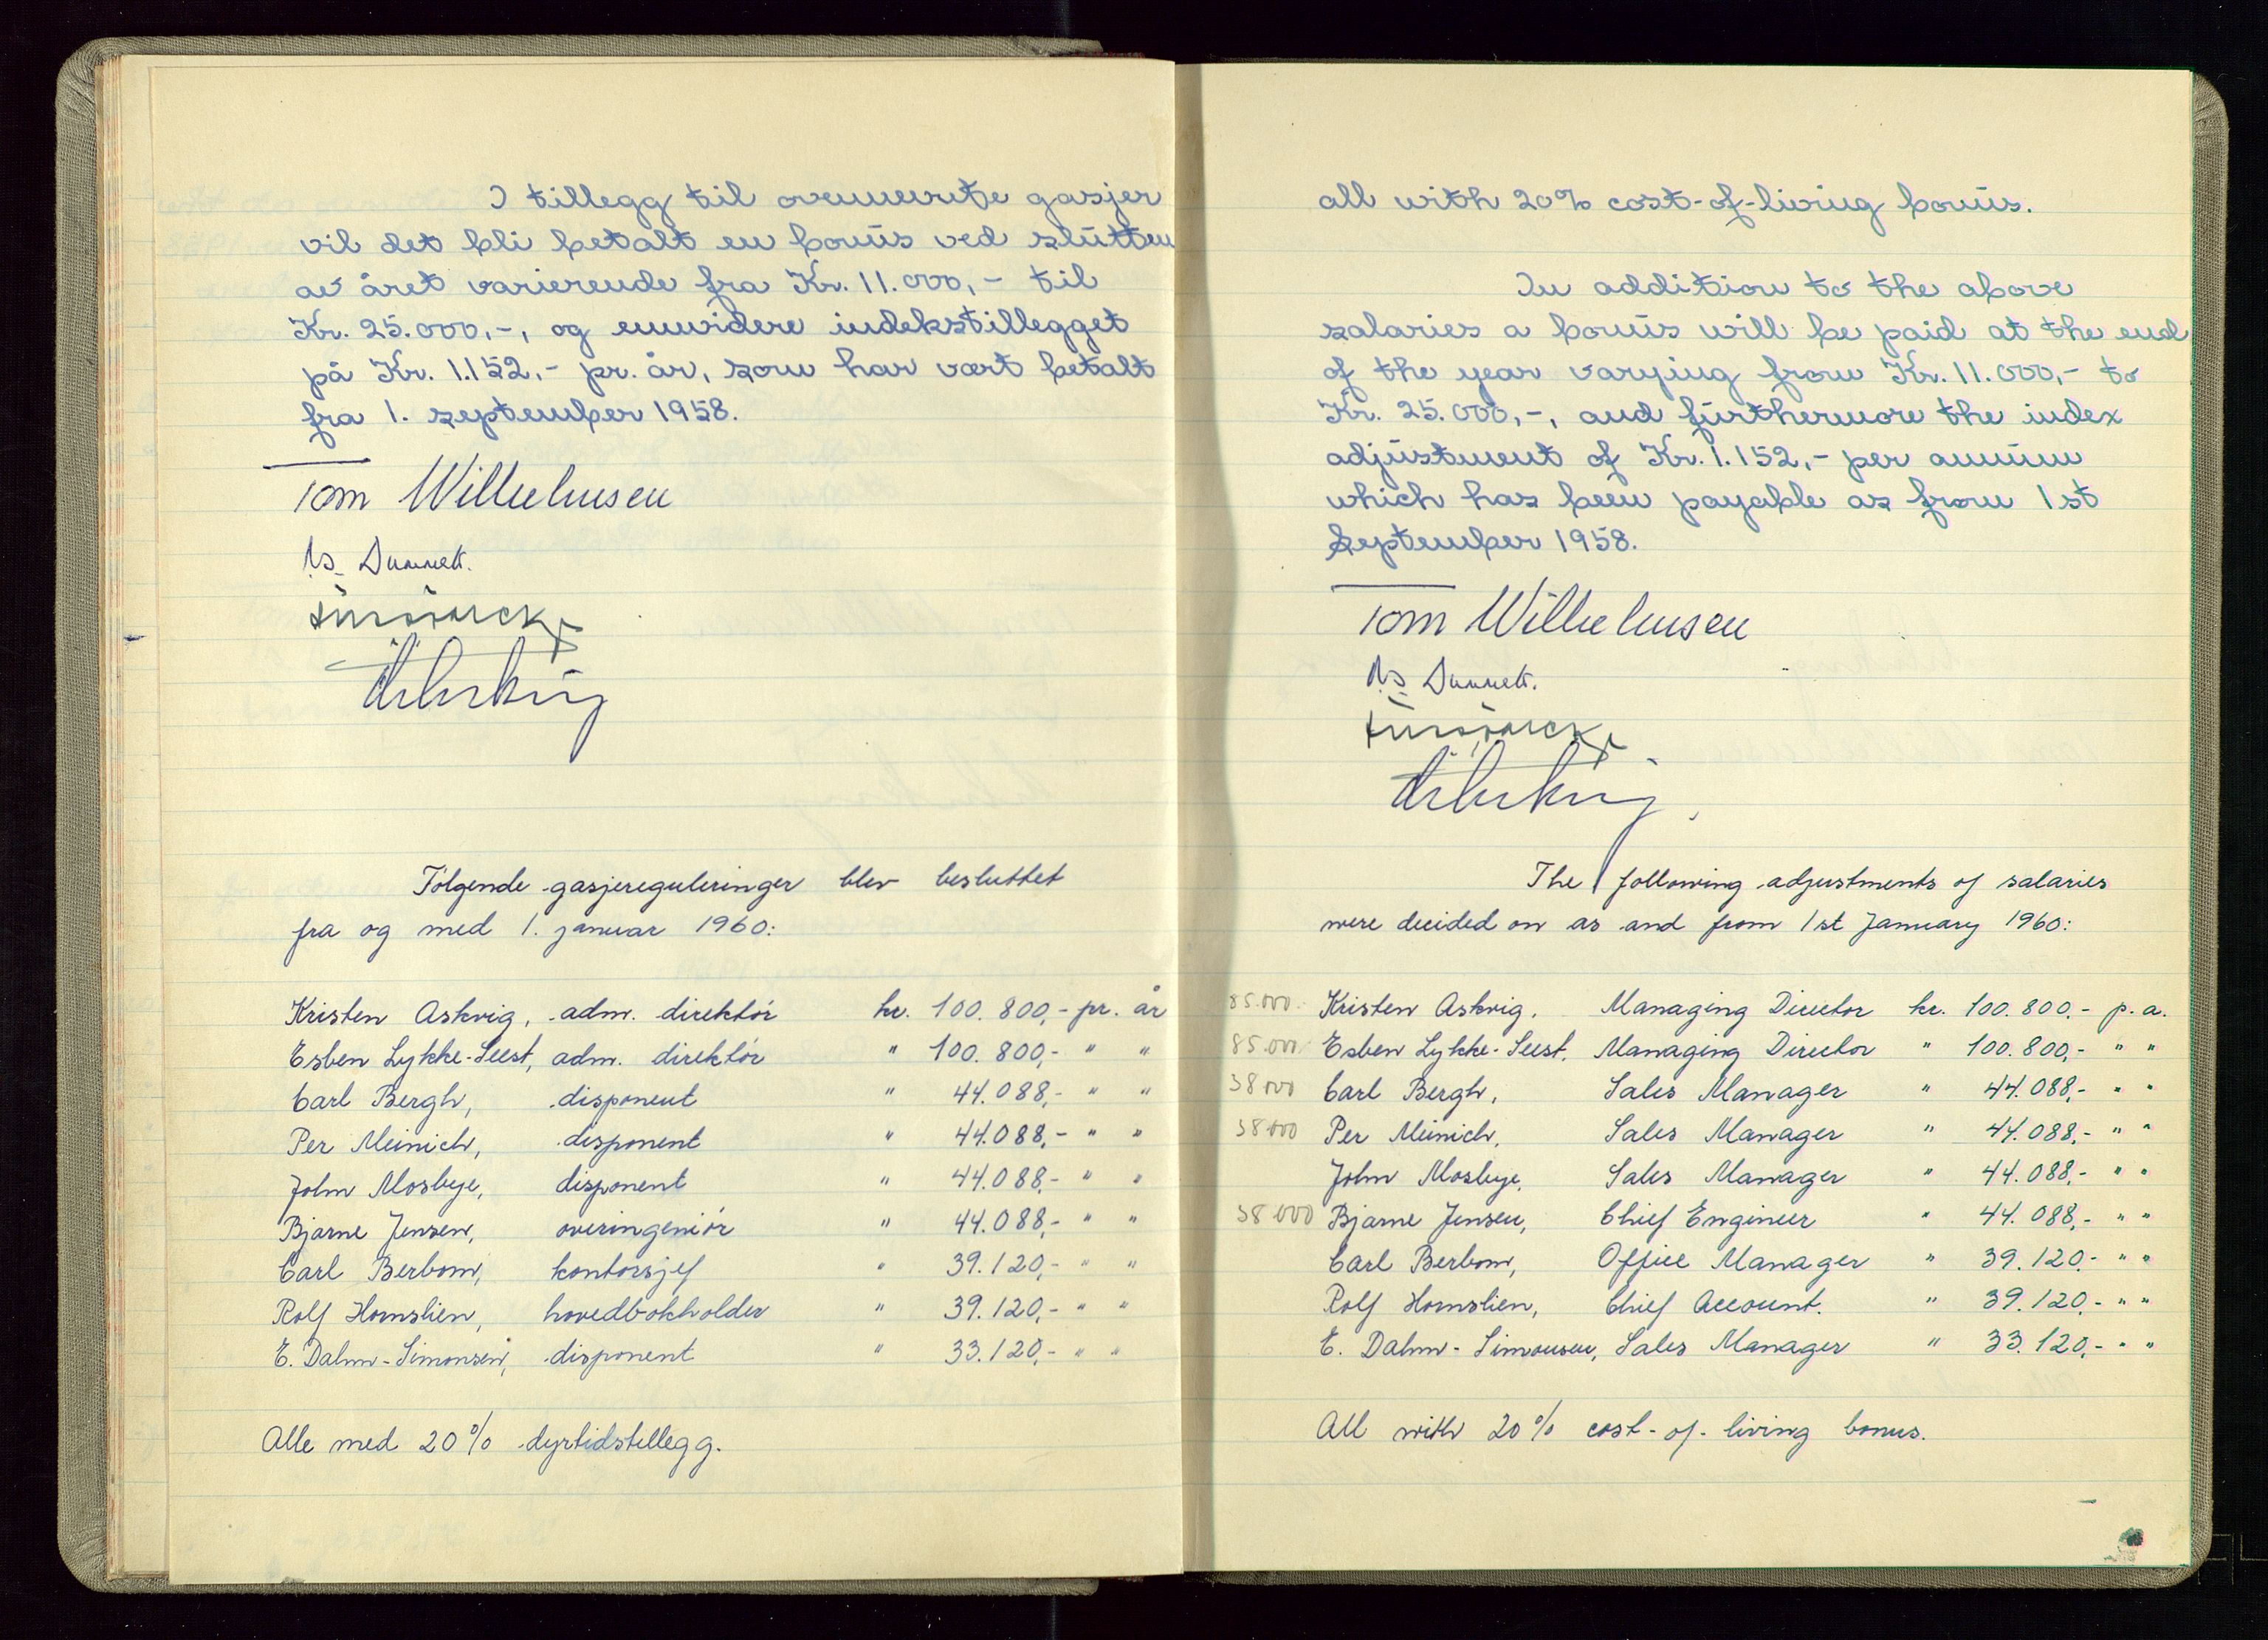 I tillegg til ovennevnte gasjer
vil det bli betalt en bonus ved slutten
av året varierende fra Kr. 11.000,- til
Kr. 25.000,-, og ennvidere indekstillegget
på Kr. 1.152,- pr. år, som har vært betalt
fra 1. september 1958.
Tom Wilhelmsen
Dunnett.
Følgende gasjereguleringer blev besluttet
fra og med 1. januar 1960:
Kristen Askvig, adm. direktör kr. 100.800,- pr. år
Esben Lykke-Seest, adm. direktör " 100.800,- " "
Carl Bergh, disponent " 44.088,- " "
Per Meinich, disponent " 44.088,- " "
John Mosbye, disponent " 44.088,- " "
Bjarne Jensen, overingeniör " 44.088,- " "
Carl Berbom, kontorsjef " 39.120,- " "
Rolf Hornslien, hovedbokholder " 39.120,- " "
E. Dahm-Simonsen, disponent " 33.120,- " "
Alle med 20% dyrtidstillegg.
all with 20% cost-of-living bonus.
In addition to the above
salaries a bonus will be paid at the end
of the year varying from Kr. 11.000,- to
Kr. 25.000,-, and furthermore the index
adjustment of Kr. 1.152,- per annum
which has been payable as from 1st
September 1958.
Tom Wilhelmsen
Dunnett.
The following adjustments of salaries
were decided on as and from 1st January 1960:
85.000. Kristen Askvig, Managing Director kr. 100.800,- p.a.
85.000 Esben Lykke-Seest, Managing Director " 100.800,- " "
38000 Carl Bergh, Sales Manager " 44.088,- " "
38000 Per Meinich, Sales Manager " 44.088,- " "
John Mosbye, Sales Manager " 44.088,- " "
38000 Bjarne Jensen, Chief Engineer " 44.088,- " "
Carl Berbom, Office Manager " 39.120,- " "
Rolf Hornslien, Chief Account. " 39.120,- " "
E. Dahm-Simonsen, Sales Manager " 33.120,- " "
All with 20% cost-of-living bonus.